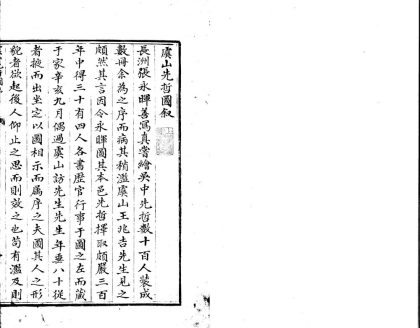 虞山先哲圖叙
長洲張永暉善寫真嘗繪吳中先哲數十百人裝成
數冊余為之序而病其稍濫虞山王兆吉先生見之
頗然其言因令永暉圖其本邑先哲擇取頗嚴三百
年中得三十有四人各書歷官行事于圖之左而藏
于家辛亥九月偶過虞山訪先生先生年垂八十從
者掖而出坐定以圖相示而屬序之夫圖其人之形
貌者欲起後人仰止之思而則效之也茍有濫及則